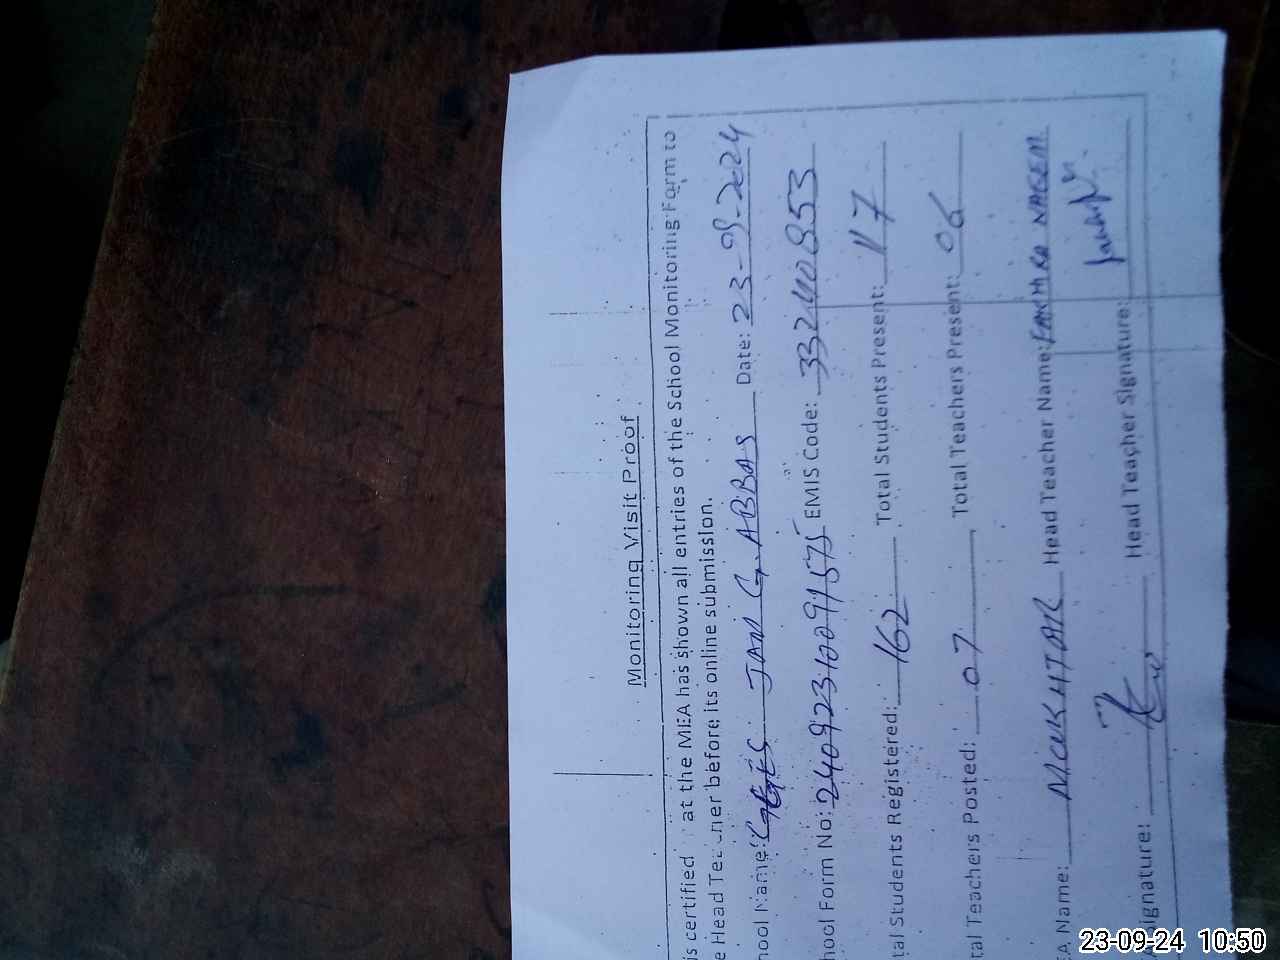 Monitoring Visit Proof
is certified at the MEA has shown all entries of the School Monitoring Form to
e Head Teacher before its online submission.
hool Name: GGES JAN G. ABBAS Date: 23-09-2024
hool Form No: 24092310091575 EMIS Code: 33240853
tal Students Registered: 162 Total Students Present: 117
tal Teachers Posted: 07 Total Teachers Present: 06
EA Name: MUKHTAR Head Teacher Name: FAKHRA NAEEM
Signature: Head Teacher Signature:
23-09-24 10:50